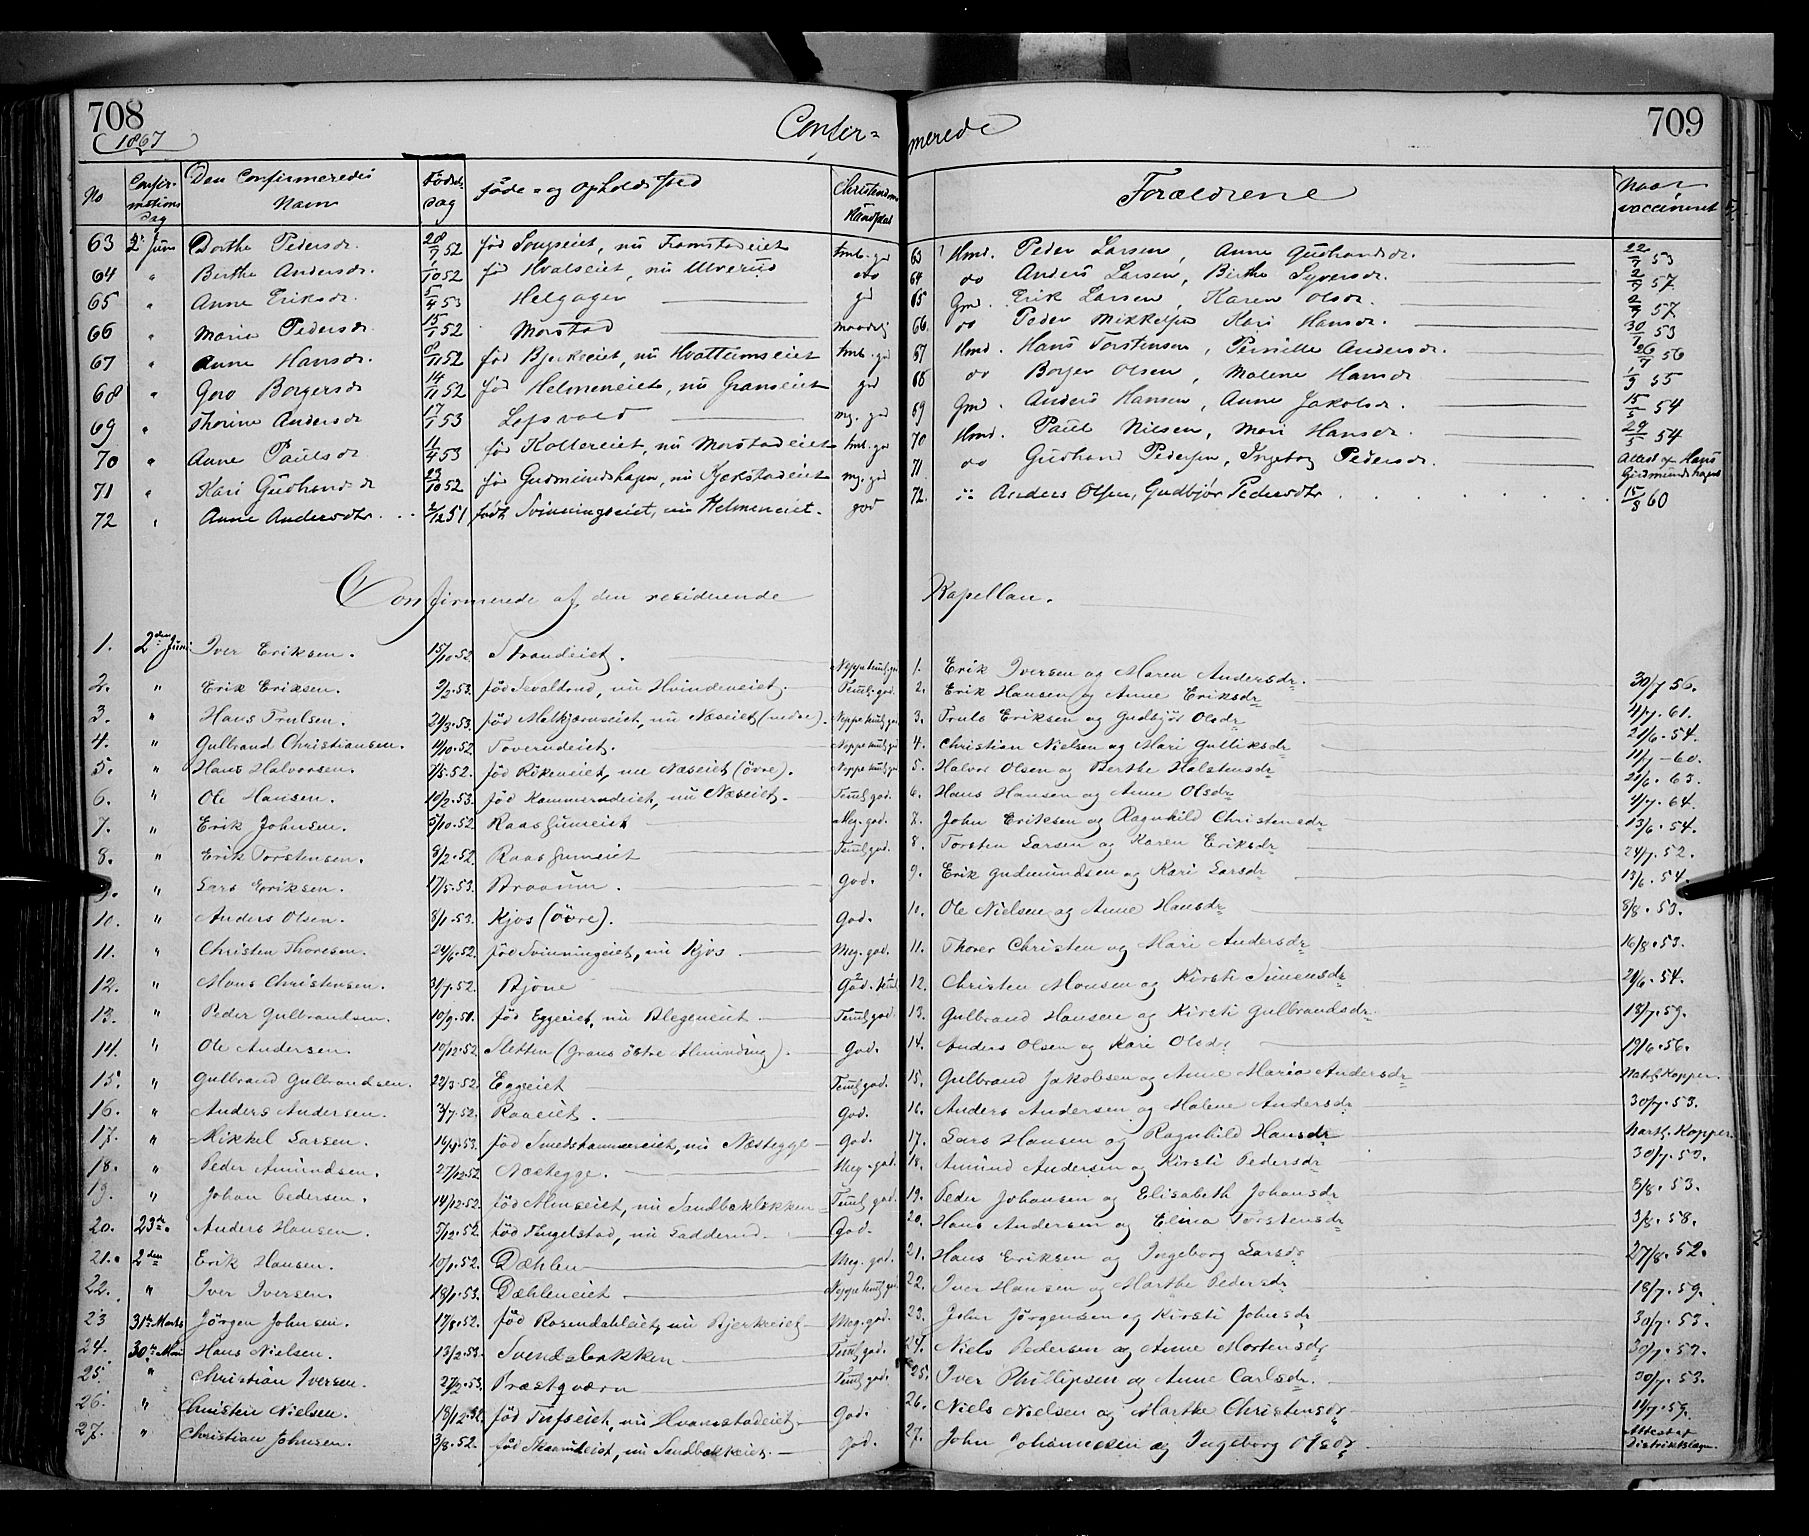 708
1867
Confir=
No
Confir-
mations
Dag
Den Confirmeredes
Navn
Fødsels
dag
Føde- og Opholdssted
Christendoms
Kundskab
63 2den Juni Dorthe Pedersdr. 28/7 52 fød Songseiet, nu Framstadeiet tml. gd
64 " Berthe Andersdr. 1/10 52 fød Hvalseiet, nu Ulverud do
65 " Anne Eriksdr. 5/4 53 Helgager gd
66 " Marie Pedersdr 15/1 52 Morstad maadelig
67 " Anne Hansdr. 8/11 52 fød Bjerkeeiet, nu Hvattumseiet tml. gd
68 " Goro Borgersdr 14/11 52 fød Helmeneiet, nu Granseiet gd
69 " Thorine Andersdr 17/1 53 Lofsvold mg. gd
70 " Anne Paulsdr 11/4 53 fød Kottereiet, nu Morstadeiet tml. gd
71 " Kari Gudbrandsdr 23/10 52 fød Gudmundshagen, nu Kjekstadeiet mg. gd
72 " Anne Andersdtr. 2/12 51 født Svinningseiet, nu Helmeneiet. god
Confirmerede af den residerende
1. 2den Juni Iver Eriksen. 15/10.52 Strandeiet. Neppe tml. gd
2. " Erik Eriksen. 9/3.53. fød Sevaldrud, nu Hvindeneiet. Teml. god.
3. " Hans Trulsen. 21/3.53. fød Molkjærnseiet, nu Næseiet (nedre). Neppe tml. gd
4. " Gulbrand Christiansen. 11/10.52. Toverudeiet. Neppe tml. gd
5. " Hans Halvorsen. 1/5.52. fød Rikeneiet, nu Næseiet (øvre). Neppe tml. gd
6. " Ole Hansen. 10/2.53. fød Kammerudeiet, nu Næseiet. Teml. god.
7. " Erik Johnsen. 5/10.52. Raassumeiet Meg. god.
8. " Erik Torstensen. 8/2.52. Raassumeiet Teml. god.
9. " Lars Eriksen. 17/5.53. Braaum. God.
10. " Anders Olsen. 8/1.53. Kjos (øvre). God.
11. " Christen Thoresen. 24/6.52. fød Svinningeiet, nu Kjos Meg. god.
12. " Mons Christensen. 31/7.52. Bjone God. tml.
13. " Peder Gulbrandsen. 10/9.50. fød Eggeeiet, nu Blegeneiet. Teml. god.
14. " Ole Andersen. 10/12.52. Sletten (Grans østre Almending). God.
15. " Gulbrand Gulbrandsen. 22/3.52. Eggeeiet Teml. god.
16. " Anders Andersen. 3/7.52. Raaeiet. God.
17. " Mikkel Larsen. 16/4.53. fød Smedshammereiet, nu Næstegge God.
18. " Peder Amundsen. 27/12.52 Næstegge. Meg. god.
19. " Johan Pedersen. 14/12.52. fød Almseiet, nu Sandbakbakken Teml. god.
20. 23de. Anders Hansen. 5/12.52 fød Tingelstad, nu Sadderud. God.
21. 2den Erik Hansen. 10/1.52. Dæhlen Meg. god.
22. " Iver Iversen. 18/1.53. Dæhleneiet Neppe tml. gd
23 31te Marts Jørgen Johnsen. 17/8.52. fød Rosendahleiet, nu Bjerkeeiet Meg. god.
24. 30te Mai Hans Nielsen. 13/2.53. Svendsbakken Teml. god.
25. " Christian Iversen. 27/2.53. Præstqværn Teml. god.
26. " Christen Nielsen. 18/12.52. fød Tufseiet, nu Hvamstadeiet. God.
27. " Christian Johnsen. 3/8.52. fød Skaareiet, nu Sandbakkeiet. god.
709
merede
Forældrene
Naar
vaccineret
63 Hmd. Peder Larsen, Anne Gudbrandsdr. 22/7 53
64 do Anders Larsen, Birthe Syversdr. 2/9 57
65 Gmd. Erik Larsen, Karen Olsdr. 2/9 57
66. do Peder Mikkelsen Kari Hansdr. 30/7 53
67 Hmd. Hans Torstensen, Pernille Andersdr. 26/7 56
68 do Borger Olsen, Malene Hansdr 1/9 55
69 Gmd. Anders Hansen, Anne Jakobsdr. 15/6 54
70 Hmd. Paul Nilsen, Mari Hansdr. 29/5 54
71 do Gudbrand Pedersen, Ingebog Pedersdr. Attest af Hans Gudmundshagen
72. Anders Olsen, Gudbjør Pedersdtr. 15/8 60
Kapellan.
1. Erik Iversen og Maren Andersdr. 30/7 56.
2. Erik Hansen og Anne Eriksdr 4/7. 61.
3. Truls Eriksen og Gudbjør Olsdr 21/6. 54.
4. Christian Nielsen og Mari Gulliksdr 11/7-60.
5. Halvor Olsen og Berthe Halstensdr 21/6. 63.
6. Hans Hansen og Anne Olsdr 4/7. 64.
7. John Eriksen og Ragnhild Christensdr 13/6. 54.
8. Torsten Larsen og Karen Eriksdr 24/7. 52.
9. Erik Gudmundsen og Kari Larsdr 13/6. 54.
10. Ole Nielsen og Anne Hansdr 8/8. 53.
11. Thorer Christen og Mari Andersdr 16/8. 53.
12. Christen Monsen og Kirsti Simensdr 21/6. 54.
13. Gulbrand Hansen og Kirsti Gulbrandsdr. 18/7. 59.
14. Anders Olsen og Kari Olsdr 19/6. 56.
15. Gulbrand Jakobsen og Anne Maria Andersdr Natl. Kopper.
16. Anders Andersen og Malene Andersdr 30/7. 53.
17. Lars Hansen og Ragnhild Hansdr Nartl. Kopper.
18. Amund Andersen og Kirsti Pedersdr 30/7. 53.
19. Peder Johansen og Elisabeth Johansdr 3/8. 53.
20. Hans Andersen og Elina Torstensdr 3/8. 58.
21. Hans Eriksen og Ingeborg Larsdr 27/8. 52.
22. Iver Hansen og Marthe Pedersdr 18/7. 59.
23. John Jørgensen og Kirsti Johnsdr 30/7. 53.
24. Niels Pedersen og Anne Mortensdr 30/7. 53.
25. Iver Phillipsen og Anne Carlsdr. 30/7. 53.
26. Niels Nielsen og Marthe Christensdr 14/7. 59.
27. John Johannesen og Ingeborg Olsdr Attest af Distriktslægen.